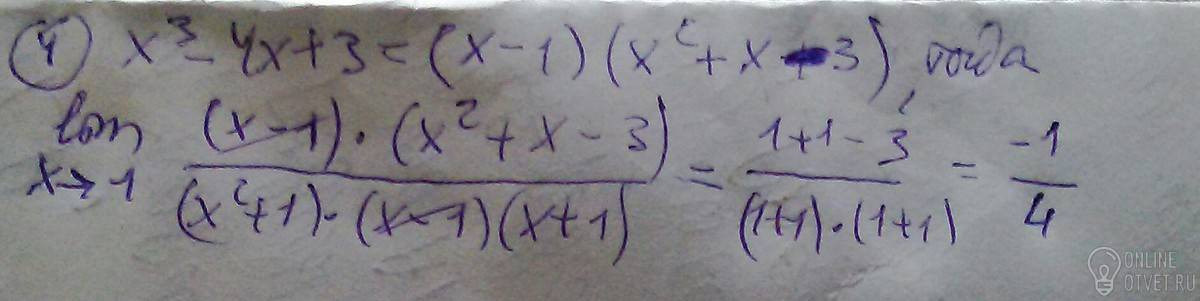 ④ x³ - 4x + 3 = (x - 1)(x² + x - 3), тогда
lim x→1 (x-1)·(x² + x - 3) / (x²+1)·(x-1)(x+1) = 1+1-3 / (1+1)·(1+1) = -1/4
ONLINE
OTVET.RU